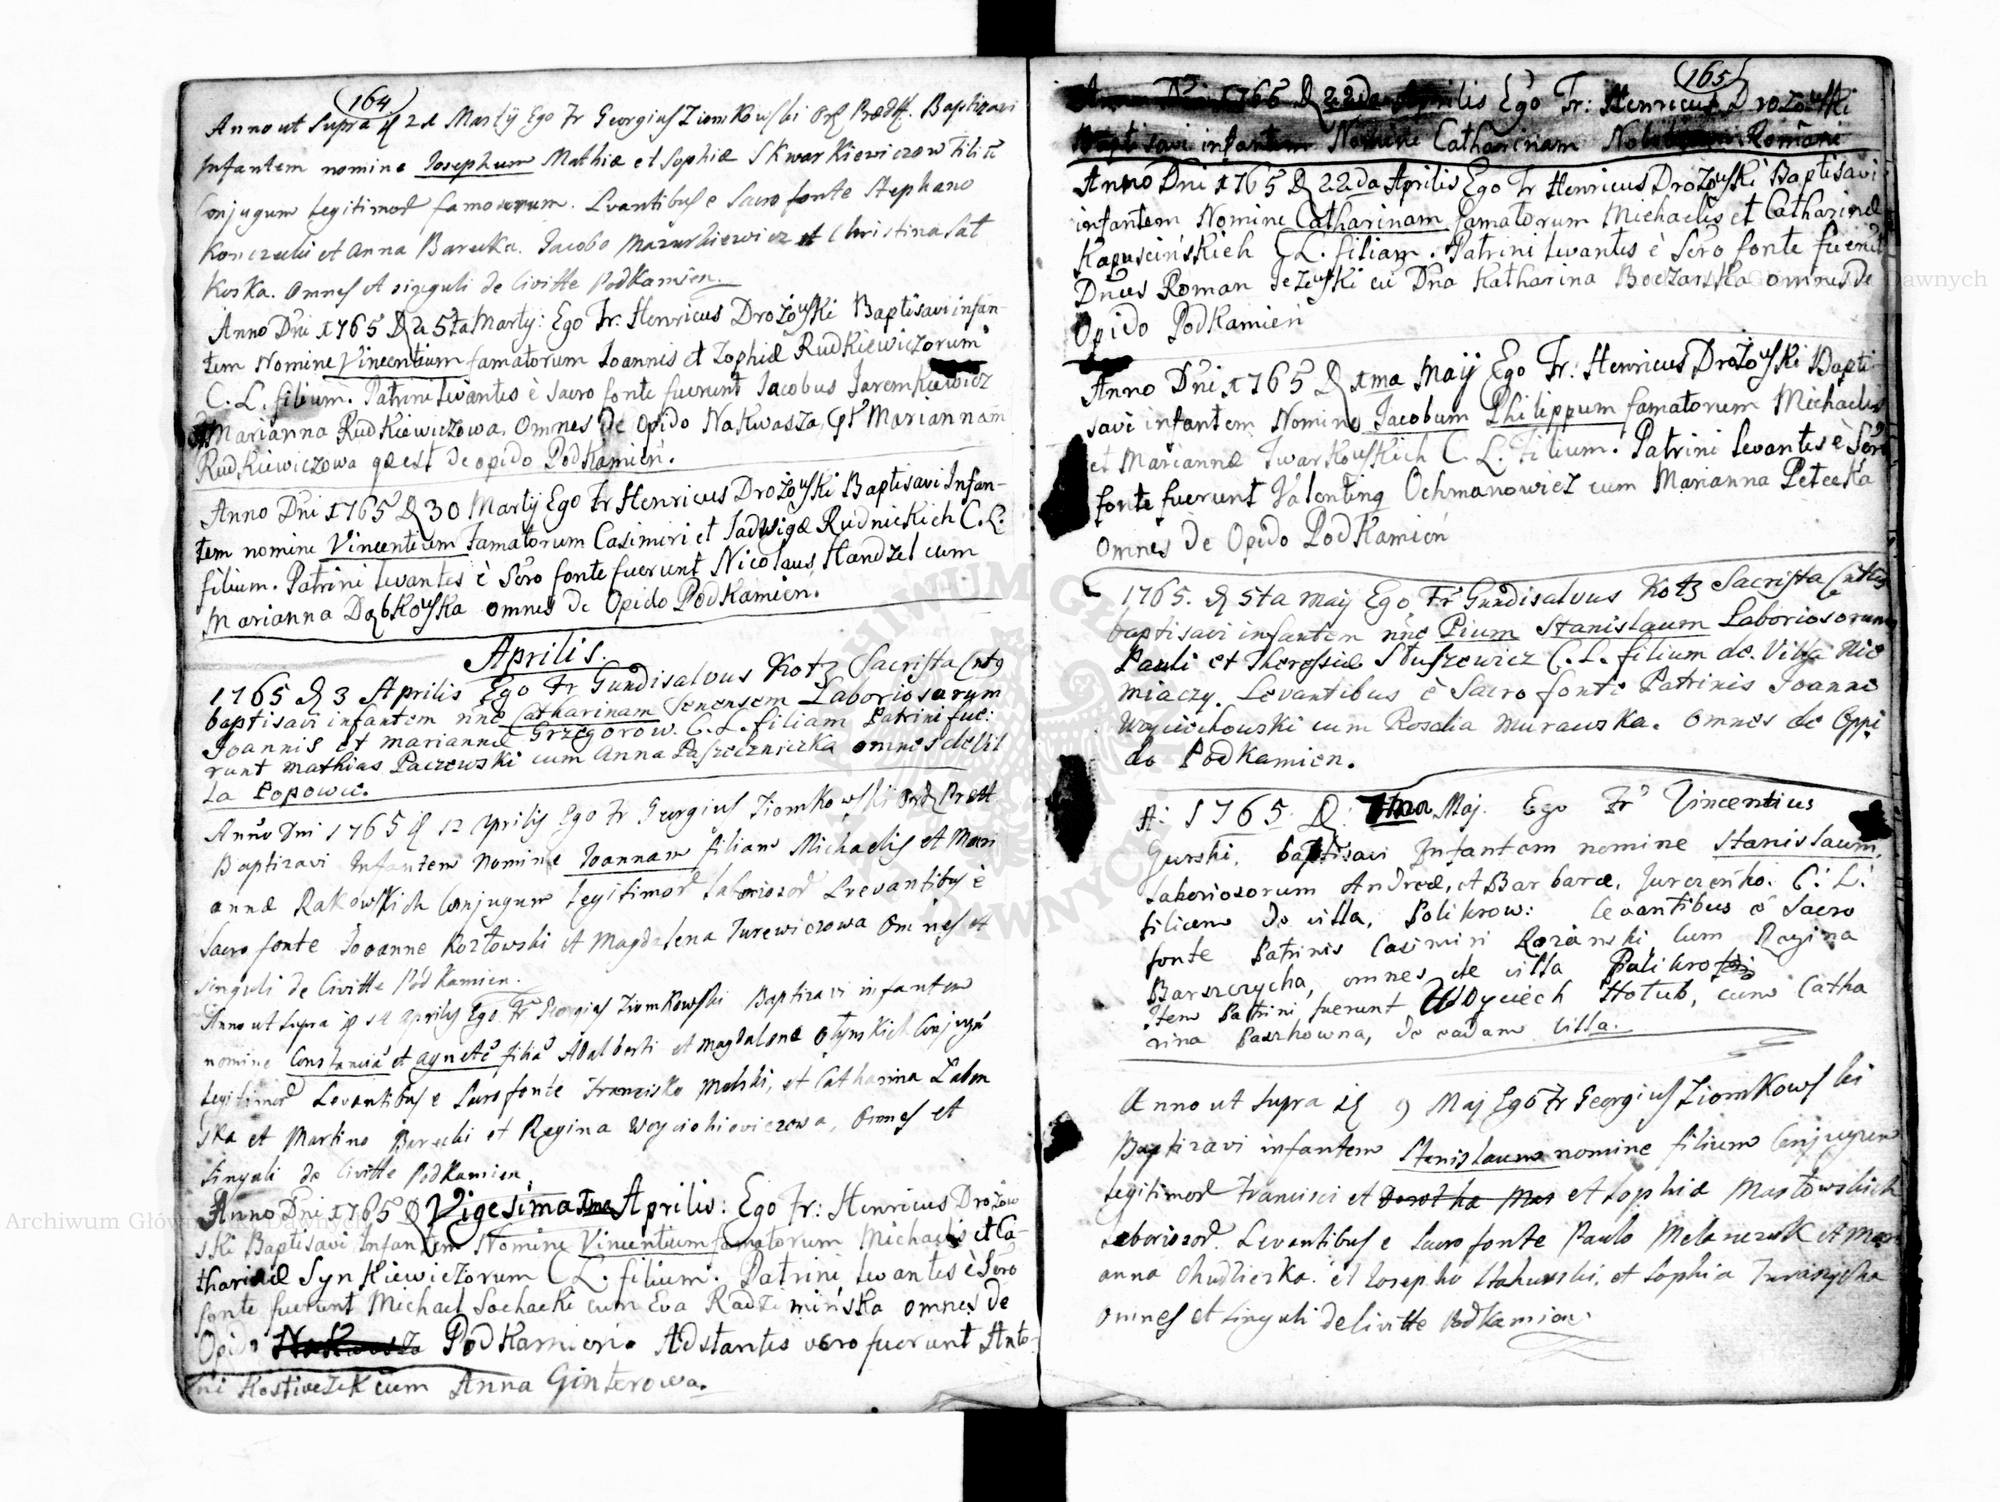 164
Anno ut Supra d 2d Martij Ego Fr Georgius Ziomkowski Ord Præd. Baptizavi
Infantem nomine Josephum Mathiæ et Sophiæ Skwarkiewiczow filiū
Conjugum legitimor famosorum. Levantibus e Sacro fonte Stephano
et Anna Barecka. Jacobo Mazurkiewicz et Christina Sat
koska. Omnes et singuli de Civitte Podkamien.
Anno Dni 1765 D 25ta Martij: Ego Fr: Henricus Drozowski Baptisavi infan-
tem Nomine Vincentium famatorum Joannis et Zophiæ Rudkiewiczorum
C. L. filium. Patrini levantes è Sacro fonte fuerunt Jacobus Jaremkiewicz
Marianna Rudkiewiczowa. Omnes de Opido Nakwasza, Mariannam
Rudkiewiczowa q est de opido Podkamień.
Anno Dni 1765 D 30 Martij Ego Fr Henricus Drozowski Baptisavi Infan-
tem nomine Vincentium Famatorum Casimiri et Jadwigæ Rudnickich C. L.
filium. Patrini levantes è Sero fonte fuerunt Nicolaus Handzel cum
Marianna Dąbkowska omnes de Opido Podkamień.
Aprilis.
1765 D 3 Aprilis Ego Fr Gundisalvus Kotz Sacrista Cnts
baptisavi infantem nne Catharinam Senensem Laboriosorum
Joannis et Mariannæ Grzegorow. C. L. filiam Patrini fue:
runt Mathias Paczewski cum Anna omnes de Vil
la Popowic.
Anno Dni 1765 d 12 Aprilis Ego Fr Georgius Ziomkowski Ord Præd
Baptizavi Infantem Nomine Joannam filiam Michaelis et Mari
annæ Rakowskich Conjugum legitimor laboriosor Levantibus è
Sacro fonte Joanne Kozłowski et Magdalena Jurewiczowa Omnes et
singuli de Civitte Podkamien.
Anno ut supra d 14 Aprilis Ego Fr Georgius Ziomkowski Baptizavi infantem
nomine Constanciā et Agnetē filiā Adalberti et Magdalenæ Conjugū
legitimor Levantibus e Sacro fonte Francisko Malski, et Catharina Zaben
ska et Martino Barecki et Regina Woyciechiewiczowa, Omnes et
singuli de Civitte Podkamien.
Anno Dni 1765 D Vigesima Aprilis: Ego Fr: Henricus Drozow
ski Baptisavi Infantem Nomine Vincentium famatorum Michaelis et Ca-
tharinæ Synkiewiczorum C L. filium. Patrini levantes è Sero
fonte fuerunt Michael Sochacki cum Eva Radzimińska omnes de
Opido Nakwasza Podkamień. Adstantes vero fuerunt Anto-
ni cum Anna Ginterowa.
165
Anno Dni 1765 D 22da Aprilis Ego Fr: Henricus Drozowski
Baptisavi infantem Nomine Catharinam Romani
Anno Dni 1765 D 22da Aprilis Ego Fr Henricus Drozowski Baptisavi
infantem Nomine Catharinam famatorum Michaelis et Catharinæ
Kapuscińskich C L. filiam. Patrini levantes è Sero fonte fuerūt
Dnus Roman Jezewski cū Dna Katharina Boczarska omnes de
Opido Podkamień
Anno Dni 1765 D 1ma Maij Ego Fr: Henricus Drozowski Bapti
savi infantem Nomine Jacobum Philippum famatorum Michaelis
et Mariannæ Twarkowskich C. L. filium. Patrini levantes è Sero
fonte fuerunt Valenting Ochmanowicz cum Marianna Petecka
Omnes de Opido Podkamień
1765. D 5ta Maij Ego Fr Gundisalvus Kotz Sacrista Cnts
baptisavi infantem nne Pium Stanislaum Laboriosorum
Pauli et Theressiæ Słuszewicz C. L. filium de Villa Nie
miaczy. Levantibus è Sacro fonte Patrinis Joanne
Woyciechowski cum Rosalia Murawska. Omnes de Oppi
do Podkamien.
A: 1765. D: Maj. Ego Fr Vincentius
Gurski, baptisavi Infantem nomine Stanislaum,
laboriosorum Andreæ, et Barbaræ, Jurczeńko. C: L:
filium De villa, Polikrow: levantibus è Sacro
fonte Patrinis Casimiri Rozanski Cum Regina
Barszczycha, omnes de villa Palikro
Item Patrini fuerunt Woyciech Hołub, cum Catha
rina Paszkowna, de eadam Villa.
Anno ut Supra d 9 Maj Ego Fr Georgius Ziomkowski
Baptizavi infantem Stanislaum nomine filium Conjugum
legitimor Francisci et Dorotha Mas et Sophiæ Masłowskich
Laboriosor. Levantibus e Sacro fonte Paulo Melanczuk et Mari
anna Chudzicka. et Josepho Stakurski, et Sophia
omnes et singuli de Civitte Podkamien.
Archiwum Główne Akt Dawnych